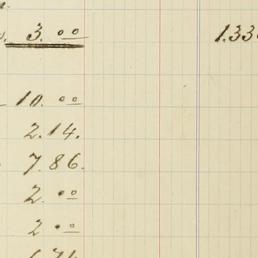 3.00 1.33
10.00
2.14.
7.86.
2.00
2.00